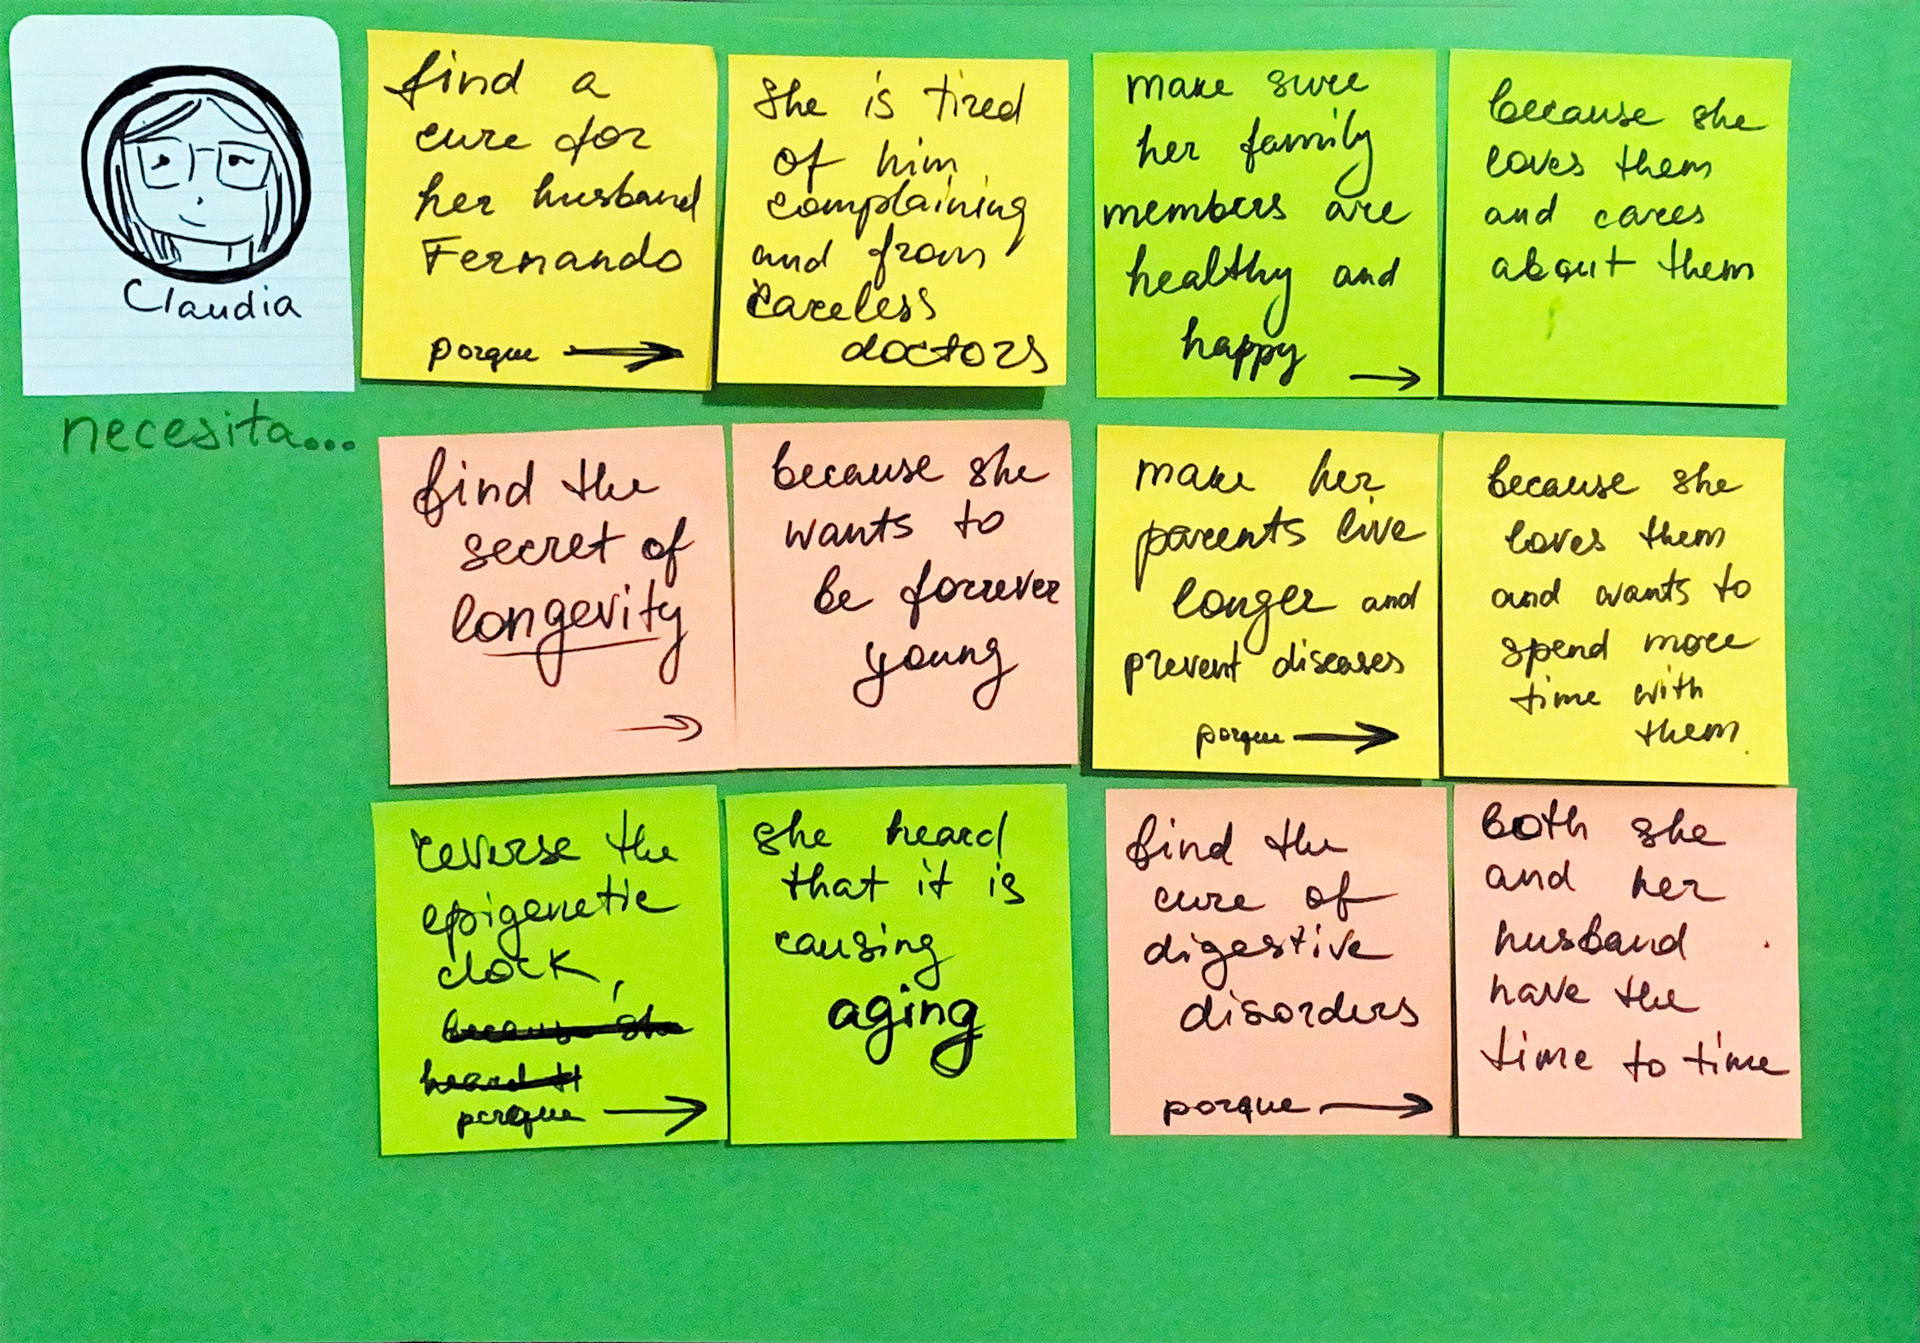 Claudia
necesita...
find a
cure for
her husband
Fernando
porque
She is tired
of him
complaining
and from
careless
doctors
make sure
her family
members are
healthy and
happy
because she
loves them
and cares
about them
find the
secret of
longevity
because she
wants to
be forrever
young
make her
parents live
longer and
prevent diseases
porque
because she
loves them
and wants to
spend more
time with
them.
reverse the
epigenetic
clock,
because she
heard
porque
she heard
that it is
causing
aging
find the
cure of
digestive
disorders
porque
Both she
and her
husband
have the
time to time